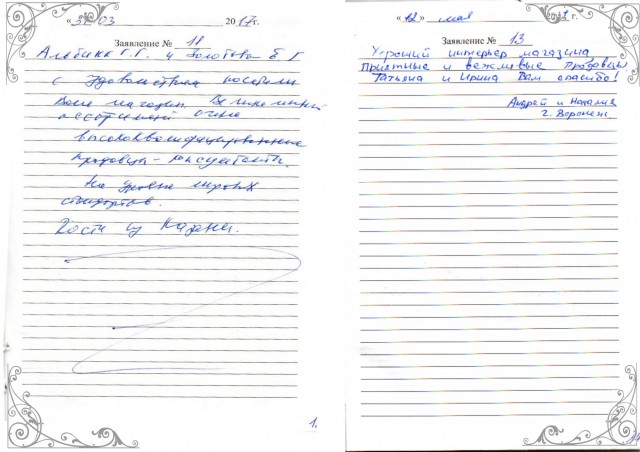 «31» 03 2017 г.
Заявление № 11
Альбика Г.Г. и Золотова Е Г
с удовольствием посетили
Ваш магазин. Великолепный
ассортимент очень
высококвалифицированные
продавцы-консультанты.
На уровне мировых
стандартов.
Гости из Казани.
1.
«12» мая г.
Заявление № 13
Хороший интерьер магазина
Приятные и вежливые Продавцы
Татьяна и Ирина Вам спасибо!
Андрей и Наталия
г. Воронеж